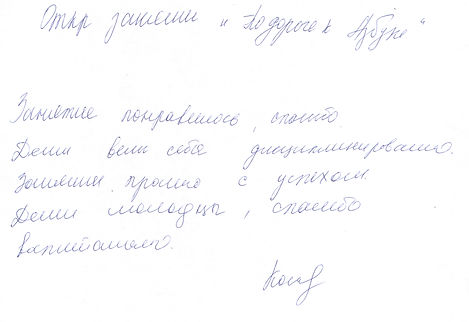 Откр занятие "По дороге к Азбуке"
Занятие понравилось, спасибо
Дети вели себя дисциплинированно.
Занятие прошло с успехом.
Дети молодцы, спасибо
воспитателю.